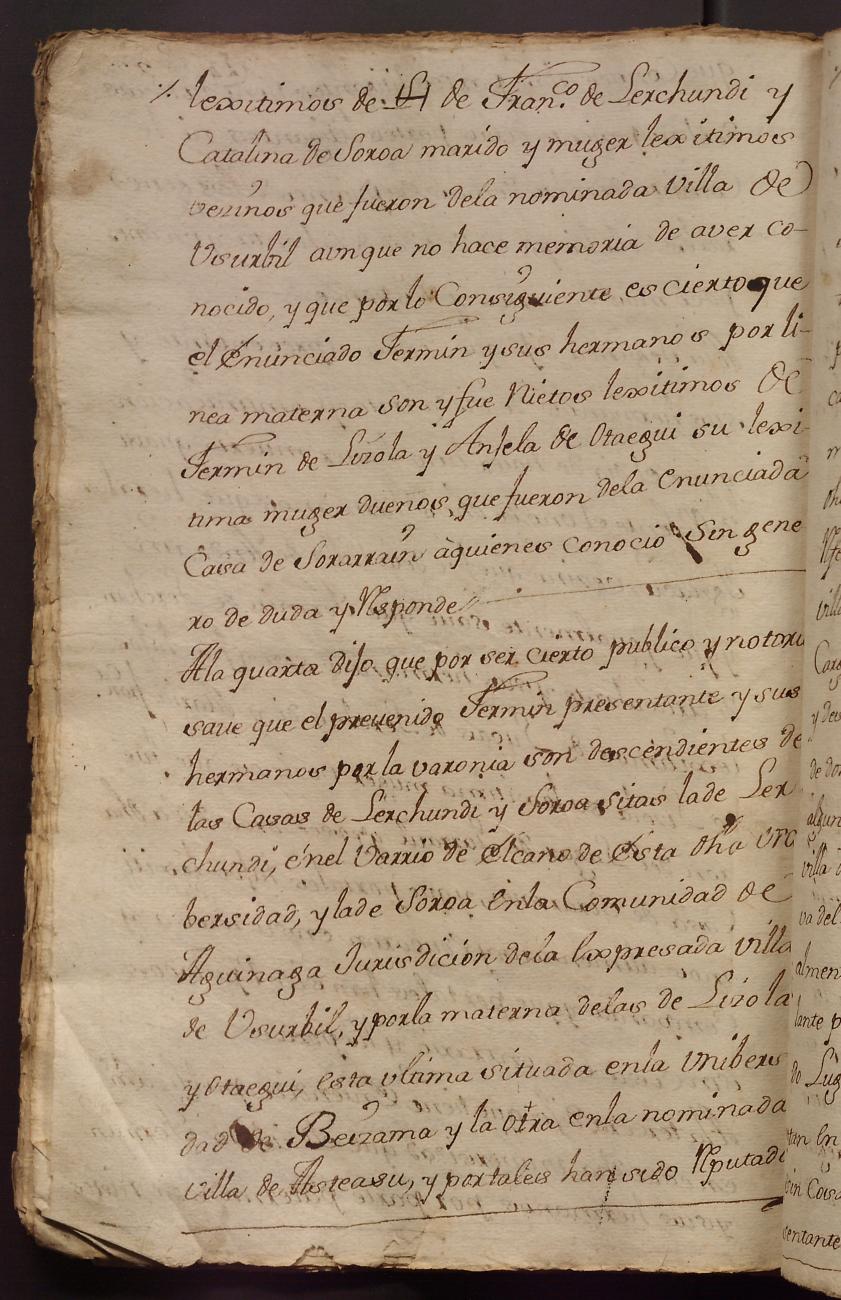 lexitimos de de Fran.co de Lerchundi y
Catalina de Soroa marido y muger lexitimos
vezinos que fueron dela nominada Villa de
Vsurbil aunque no hace memoria de aver co-
nocido, y que por lo Consiguiente es cierto que
el Enunciado Fermin y sus hermanos por li-
nea materna son y fue Nietos lexitimos de
Fermin de Lizola y Anjela de Otaegui su lexi-
tima muger duenos que fueron dela Enunciada
Casa de Sorarrain àquienes conocio Sin gene
ro de duda y Rsponde
Ala quarta dijo que por ser cierto publico y notori
save que el prevenido Fermin presentante y sus
hermanos por la varonia son descendientes de
las Casas de Lerchundi y Soroa sitas la de Ler
chundi, enel Varrio de Elcano de Esta dha Vni
bersidad, y lade Soroa Enla Comunidad de
Aguinaga Jurisdicion dela Expresada villa
de Vsurbil, y porla materna delas de Lizola
y Otaegui, esta vltima situada enla Vnibers
dad de Beizama y la otra enla nominada
villa de Asteasu, y portales han sido Rputad
algun
villa
va del
almen
lante p
do Lug
tan En
sin Cosa
sentante